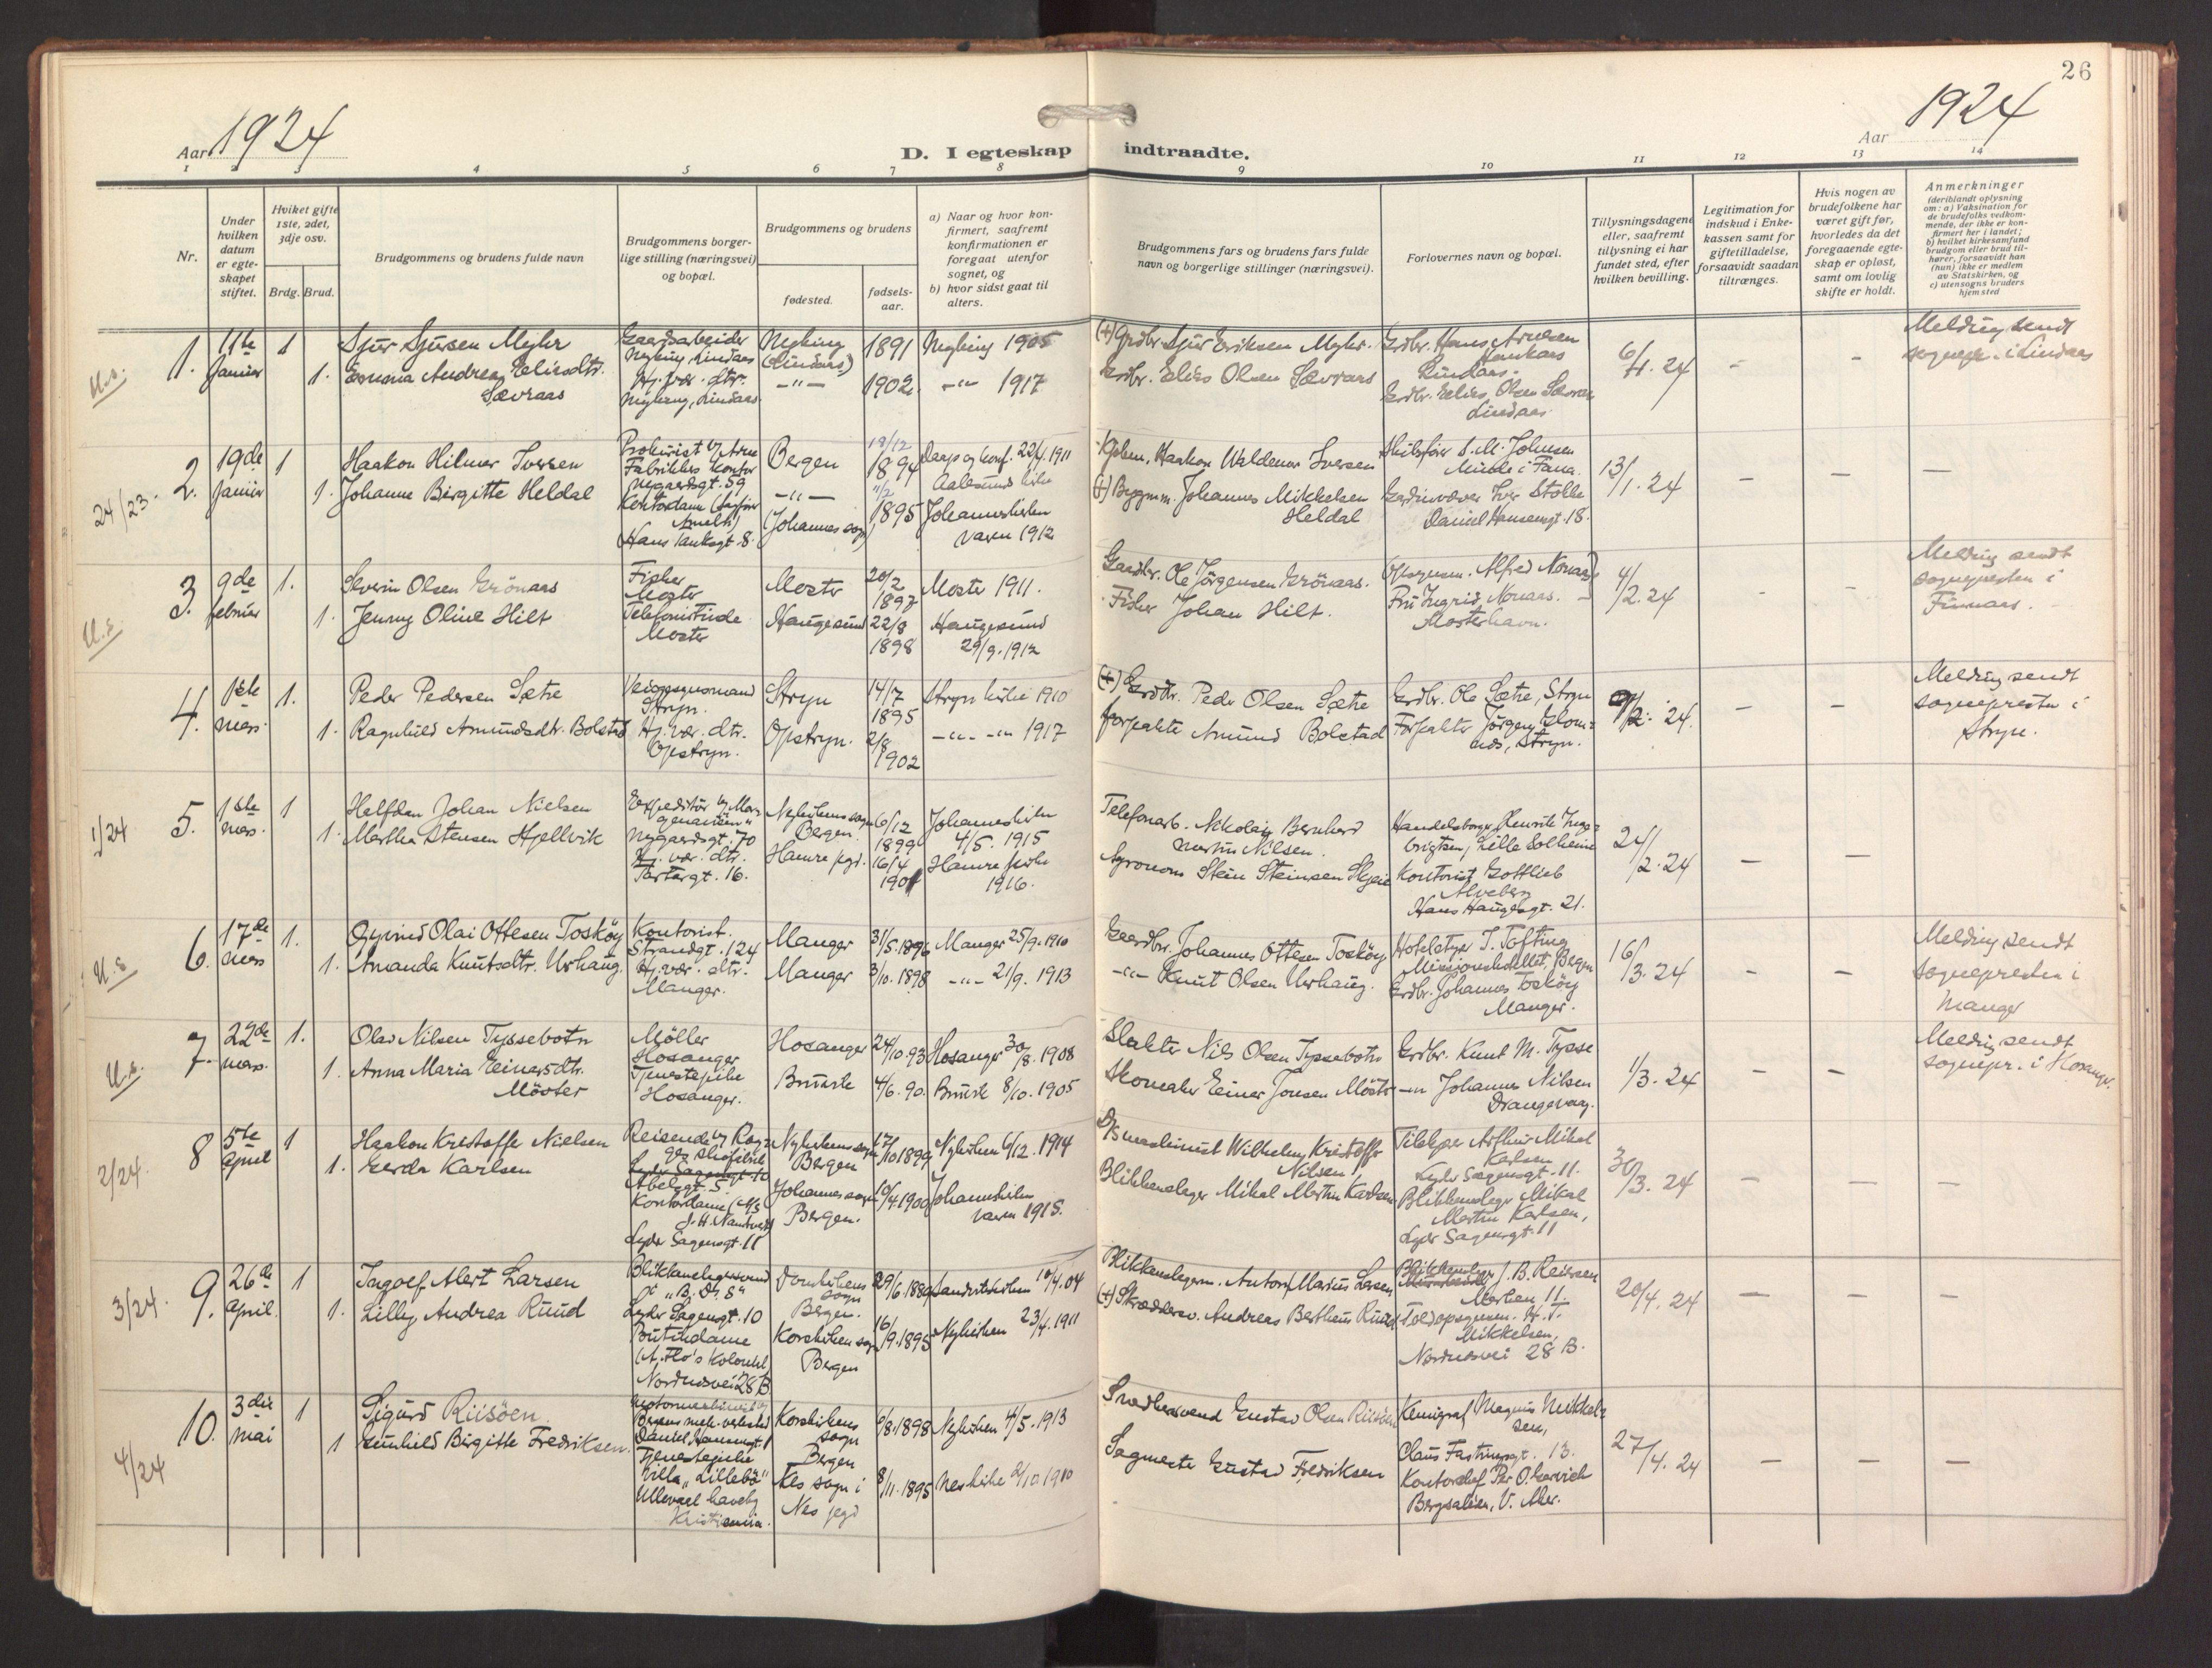 26
Aar 1924
Aar 1924
D. I egteskap indtraadte.
1 2 3 4 5 6 7 8 9 10 11 12 13 14
Nr.
Under hvilken datum er egteskapet stiftet.
Hviket gifte 1ste, 2det, 3dje osv.
Brdg. Brud.
Brudgommens og brudens fulde navn
Brudgommens borgerlige stilling (næringsvei) og bopæl.
Brudgommens og brudens
fødested.
fødselsaar.
a) Naar og hvor konfirmert, saafremt konfirmationen er foregaat utenfor sognet, og
b) hvor sidst gaat til alters.
Brudgommens fars og brudens fars fulde navn og borgerlige stillinger (næringsvei).
Forlovernes navn og bopæl.
Tillysningsdagene eller, saafremt tillysning ei har fundet sted, efter hvilken bevilling.
Legitimation for indskud i Enkekassen samt for giftetilladelse, forsaavidt saadan tiltrænges.
Hvis nogen av brudefolkene har været gift før, hvorledes da det foregaaende egteskap er opløst, samt om lovlig skifte er holdt.
Anmerkninger
(deriblandt oplysning om: a) Vaksination for de brudefolks vedkommende, der ikke er konfirmert her i landet; b) hvilket kirkesamfund brudgom eller brud tilhører, forsaavidt han (hun) ikke er medlem av Statskirken, og c) utensogns bruders hjemsted
U.s.
1. 11te Januar 1
Sjur Sjursen Myhr
1. Emma Andrea Eliesdtr. Sævraas
Gaardsarbeider
Myking, Lindaas
Hj. vær. dtr.
Myking, Lindaas
Myking (Lindaas)
-"-
1891
1902.
Myking 1905
-"- 1917
(+) Grdbr. Sjur Eriksen Myhr.
Grdbr. Elies Olsen Sævraas
Grdbr. Hans
Lindaas.
Grdbr. Elies Olsen Sævraas
Lindaas
6/1. 24
-
-
Melding sendt
sognepr. i Lindaas
24/23.
2. 19de Januar 1
Haakon Hilmer Iversen
1. Johanne Birgitte Heldal
Prokurist v/ Arne
Fabrikkes kontor
Nygaardsgt. 59
Kontordame
Hans Tanksgt. 8.
Bergen
-"-
(Johannes sogn)
18/12
1894
11/2
1895
Daap og konf. 22/4. 1911
Aalesund kirke
Johanneskirken
vaaren 1912
Kjøbm. Haakon Waldemar Iversen
(+) Bygmm. Johannes Mikkelsen
Heldal
Skibsfører S. M. Johnsen
Minde i Fana.
Iver Stolle
Daniel Hansensgt. 18.
13/1. 24
-
-
-
U.s.
3. 9de februar 1.
Severin Olsen Grönaas
1. Jenny Oline Hilt
Fisker
Moster
Telefonistinde
Moster
Moster
Haugesund
20/2
1897
22/8
1898
Moster 1911.
Haugesund
29/9. 1912
Gaardbr. Ole Jörgensen Grönaas.
Fisker Johan Hilt.
Opsynsm. Alfred Nonaas
Fru Ingrid Nonaas.
Mosterhavn.
4/2. 24
-
-
Melding sendt
sognepresten i
Finnaas.
4. 1ste mars 1.
Peder Pedersen Sætre
1. Ragnhild Amundsdtr. Bolstad
Veiopsynsmand
Stryn.
Hj. vær. dtr.
Opstryn.
Stryn
Opstryn.
14/7
1895
2/8
1902
Stryn kirke 1910
-"- -"- 1917
(+) Grdbr. Peder Olsen Sætre
Forpakter Amund Bolstad
Grdbr. Ole Sætre, Stryn
Forpakter Jörgen
Stryn.
/2. 24.
-
-
Melding sendt
sognepresten i
Stryn.
1/24
5. 1ste mars. 1
Halfdan Johan Nielsen
1. Martha Stensen Hjellvik
Expeditör v/ Morgenavisen"
Nygaardsgt. 70
Hj. vær. dtr.
Tartargt. 16.
Nykirkens sogn
Bergen.
Hamre pgd.
6/12
1899
16/4
1901
Johanneskirken
4/5. 1915
Hamre kirke
1916.
Telefonarb. Nikolai Bernhard
Martin Nilsen.
Agronom Stein Steinsen Skjeie
Handelsborger Henrik Ingebrigtsen, Lille Solheim
Kontorist Gottlieb
Alveberg
Hans Haugesgt. 21.
24/2. 24
-
-
U.s
6. 17de mars 1.
Öyvind Olai Ottesen Tosköy
1. Amanda Knutsdtr. Urhaug.
Kontorist.
Strandgt. 124
Hj. vær. dtr.
Manger.
Manger
Manger
31/5. 1896
3/10. 1898
Manger 25/9. 1910
-"- 21/9. 1913
Gaardbr. Johannes Ottesen Tosköy
-"- Knut Olsen Urhaug.
Hotelstyr. T. Tofting
Missionshotellet, Bergen
Grdbr. Johannes Tosköy
Manger.
16/3. 24
-
-
Melding sendt
sognepresten i
Manger
U.s.
7. 22de mars. 1.
Olav Nilsen Tyssebotn
1. Anna Maria Einarsdtr.
Möster
Möller
Hosanger
Tjenestepike
Hosanger.
Hosanger
Bruvik
24/10. 93
4/6. 90.
Hosanger 30/8. 1908
Bruvik 8/10. 1905
Slakter Nils Olsen Tyssebotn
Skomaker Einar Jonsen Möster
Grdbr. Knut M. Tysse
-"- Johannes Nilsen
Drangevaag.
1/3. 24
-
-
Melding sendt
sognepr. i Hosanger.
2/24.
8 5te April 1
Haakon Kristoffer Nielsen
1. Gerda Karlsen
Reisende v/
Lyder Sagensgt. 10
Abelsgt. 5.
Kontordame
Lyder Sagensgt. 11
Nykirkens sogn
Bergen
Johannes sogn
Bergen.
17/10 1899
10/4. 1900
Nykirken 6/12. 1914
Johanneskirken
vaaren 1915.
D/s maskinist Wilhelm Kristoffer
Nilsen
Blikkenslager Mikal Martin Karlsen
Arthur Mikal
Karlsen
Lyder Sagensgt. 11.
Blikkenslager Mikal
Martin Karlsen,
Lyder Sagensgt. 11
30/3. 24
-
-
-
3/24.
9. 26de April. 1
Ingolf Alert Larsen
1. Lilly Andrea Ruud
Blikkenslagersvend
Lyder Sagensgt. 10
Butikdame
Nordnesvei 28 B
Domkirkens
sogn
Bergen.
Korskirkens sogn
Bergen
29/6. 1889
16/9. 1895
Sandvikskirken 10/4. 04
Nykirken 23/4. 1911
Blikkenslagerm. Anton Marius Larsen
(+) Skræddersv. Andreas Berthens Ruud
Blikkenslager J. B. Reiersen
Marken 11.
Toldopsynsm. H. T.
Mikkelsen,
Nordnesvei 28 B.
20/4. 24
-
-
-
4/24
10. 3die mai 1
Sigurd Riisöen
1 Gunhild Birgitte Fredriksen.
Bergens mek. verksted
Daniel Hansensgt. 1
Tjenestepike
Villa "Lillebö"
Ullevaal haveby
Kristiania.
Korskirkens
sogn
Bergen
Nes sogn i
Nes pgd
6/8. 1898
8/11. 1895
Nykirken 4/5. 1913
Nes kirke 2/10 1910
Snedkersvend Gustav Olsen Riisöen
Sagmester Gustav Fredriksen
Kemigraf Magnus Mikkelsen,
Claus Fastingsgt. 13.
Kontorchef Per O.
Bergsalien, V. Aker.
27/4. 24
-
-
-